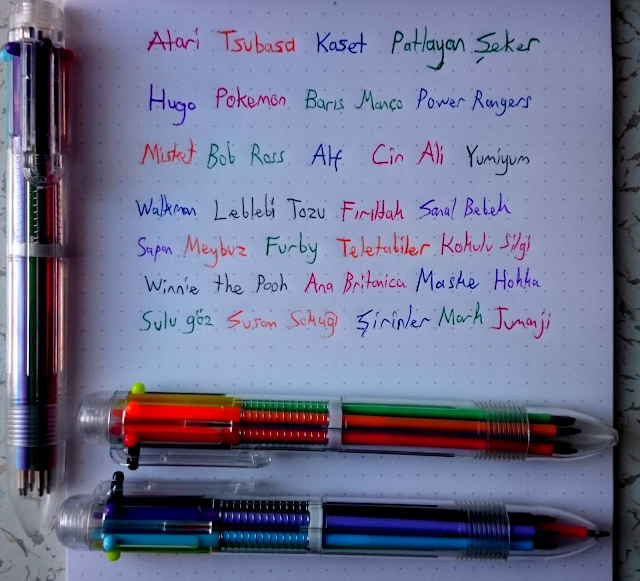 Atari Tsubasa Kaset Patlayan Şeker
Hugo Pokemon Barıs Manço Power Rangers
Misket Bob Ross Alf Cin Ali Yumiyum
Walkman Leblebi Tozu Fırıldak Sanal Bebek
Sapan Meybuz Furby Teletabiler Kokulu Silgi
Winnie the Pooh Ana Britanica Maske Hokka
Sulu göz Susam Sokağı Şirinler Mark Jumanji